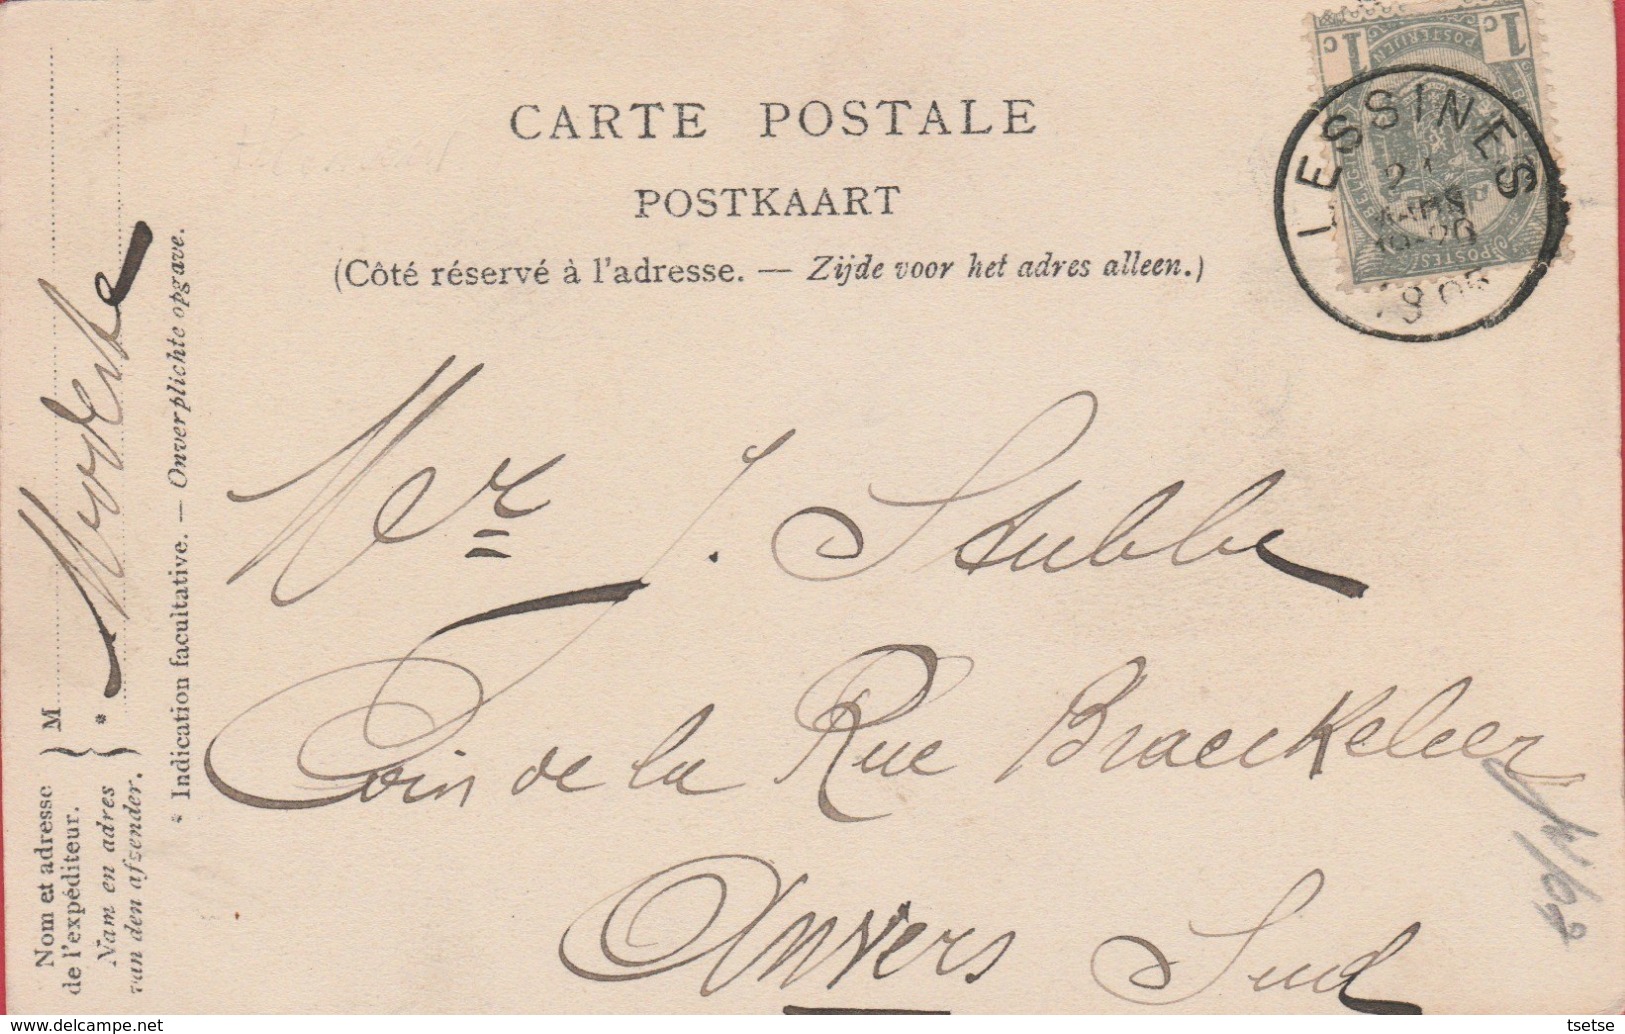 CARTE POSTALE
POSTKAART
(Côté réservé à l'adresse. — Zijde voor het adres alleen.)
1c 1c
POSTERIJEN
BELGIQUE
POSTES
LESSINES
Mer J. Stubbe
Coin de la Rue Braeckeleer
Anvers Sud
Nom et adresse
de l'expéditeur.
Nam en adres
van den afzender.
M
*
* Indication facultative. — Onverplichte opgave.
tsetse
www.delcampe.net